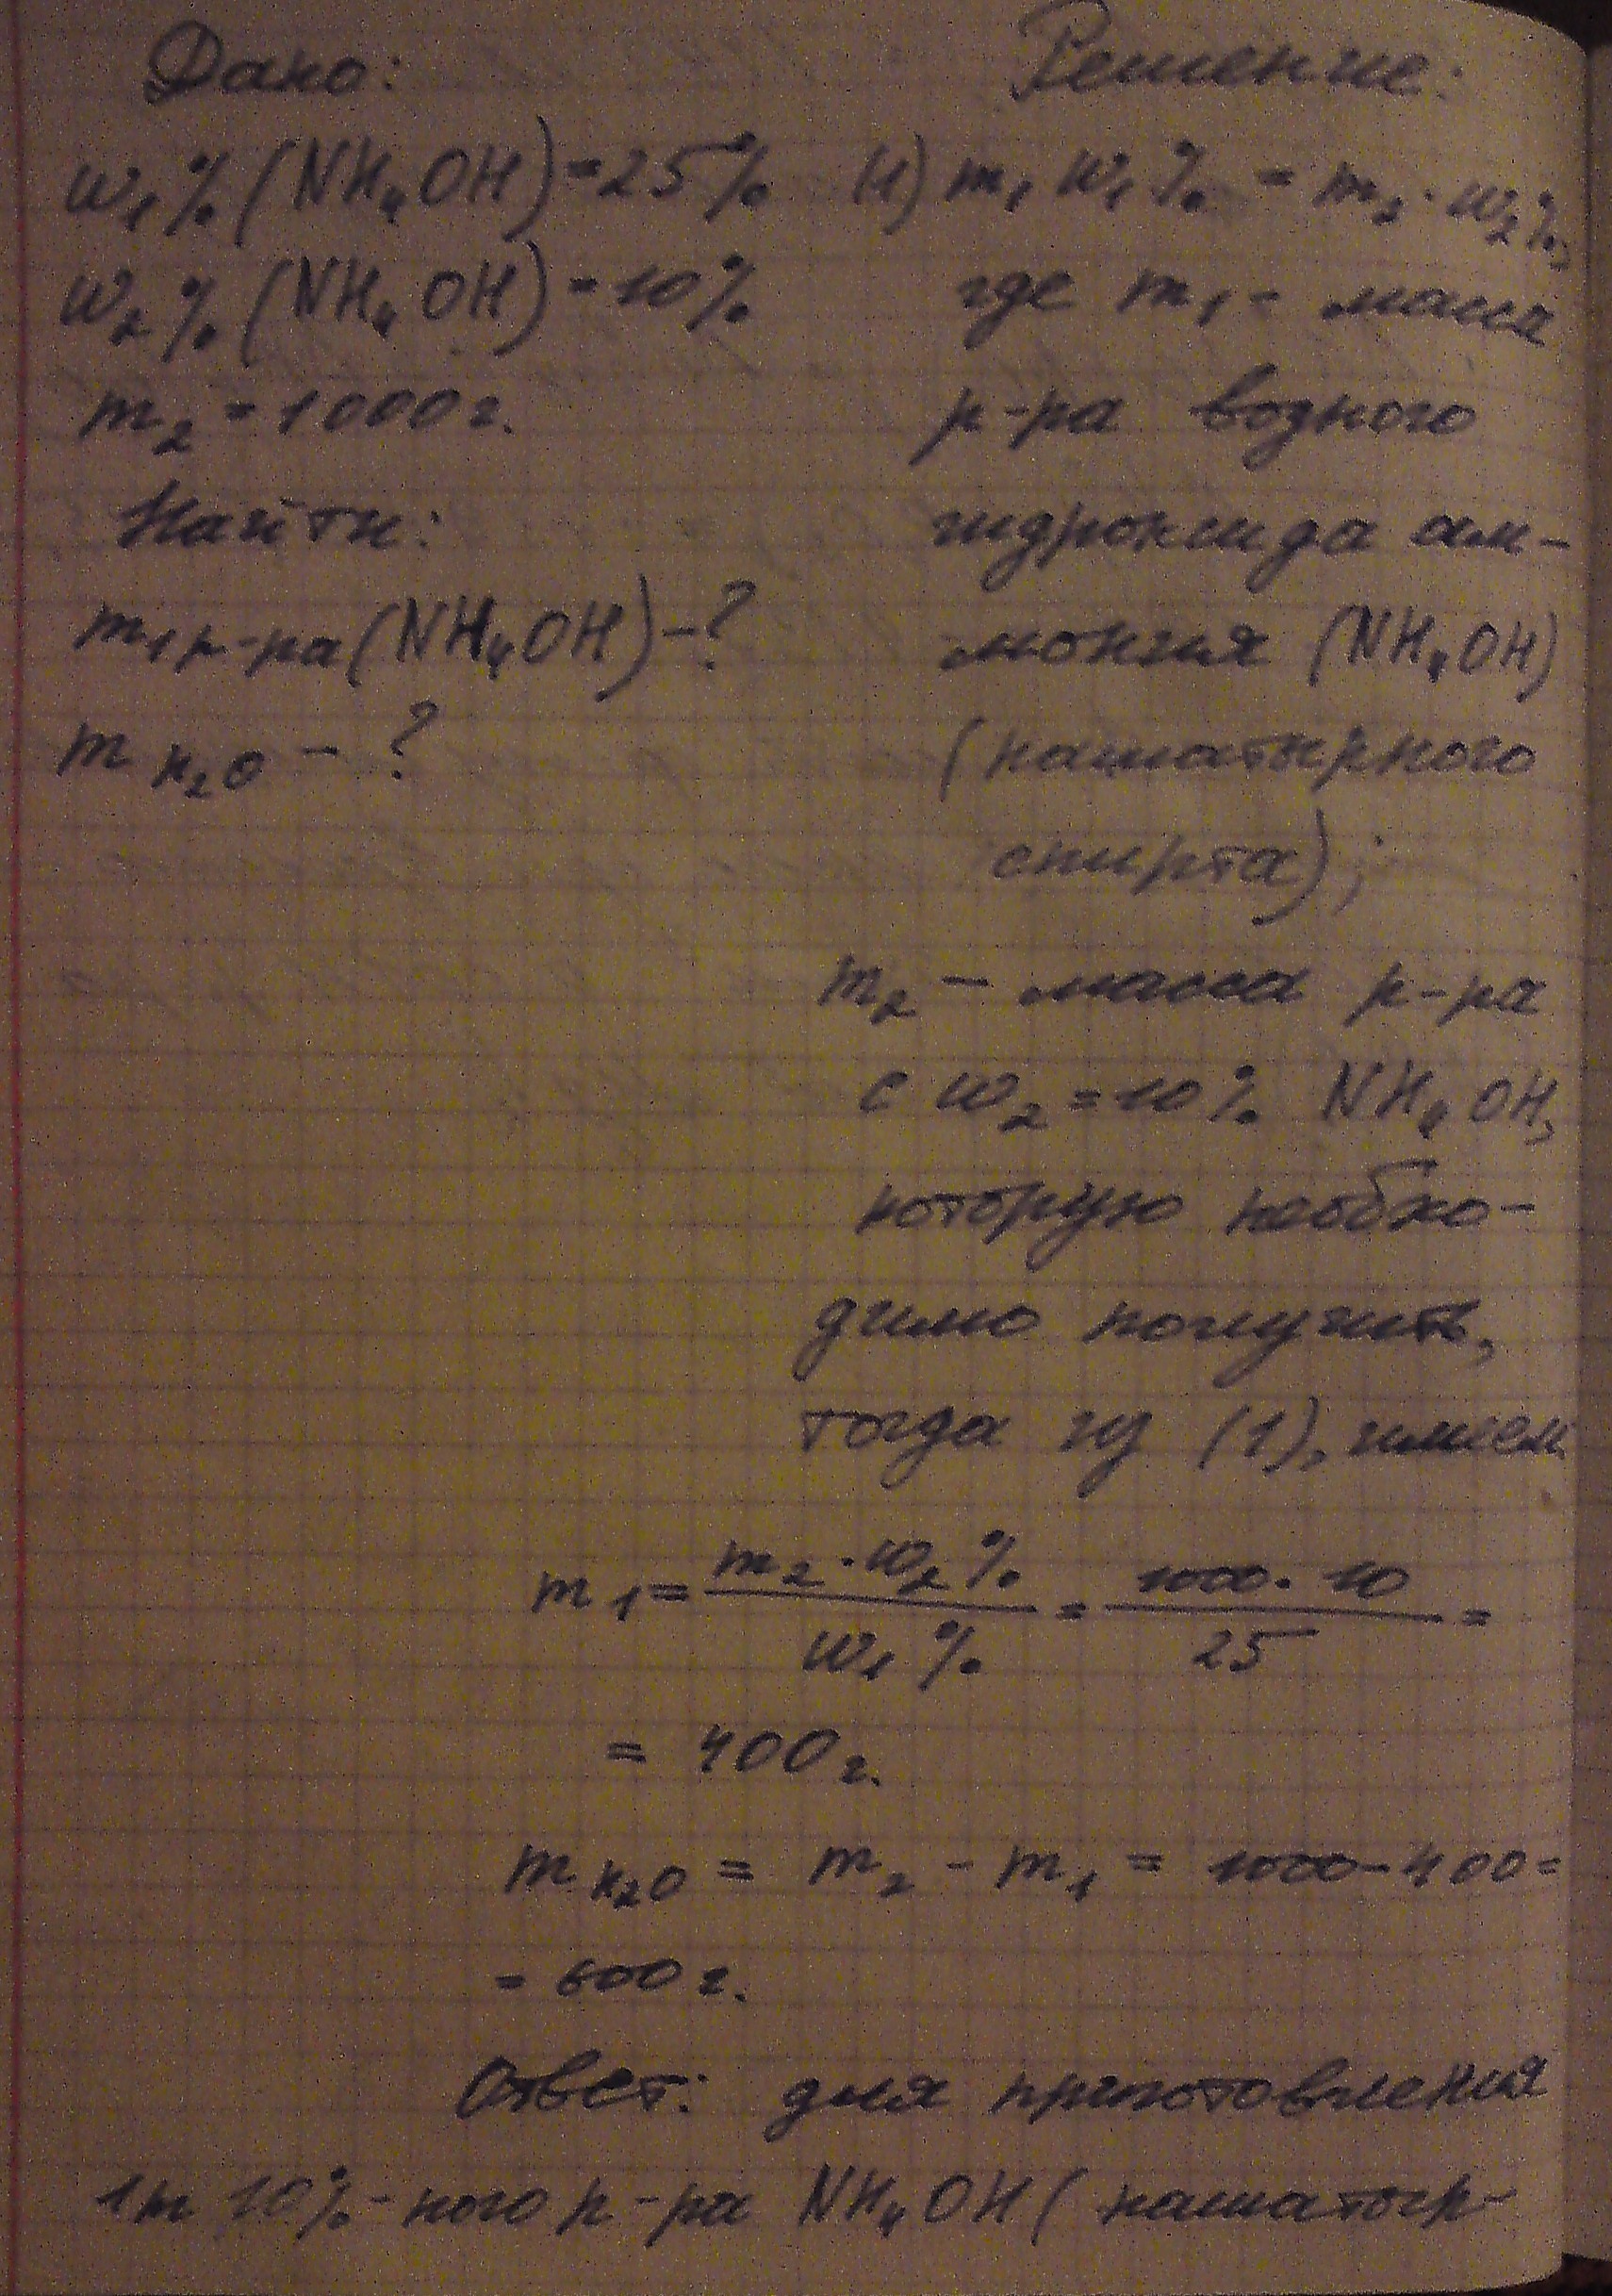 Дано:
w₁%(NH₄OH)=25%
w₂%(NH₄OH)=10%
m₂=1000г.
Найти:
m₁ р-ра(NH₄OH)-?
m H₂O - ?
Решение:
(1) m₁ w₁% = m₂·w₂%,
где m₁ - масса
р-ра водного
гидроксида ам-
мония (NH₄OH)
(нашатырного
спирта);
m₂ - масса р-ра
с w₂=10% NH₄OH,
которую необхо-
димо получить,
тогда из (1), имеем
m₁ = m₂·w₂% / w₁% = 1000·10 / 25 =
= 400г.
m H₂O = m₂ - m₁ = 1000-400=
= 600г.
Ответ: для приготовления
10%-ного р-ра NH₄OH (нашатыр-